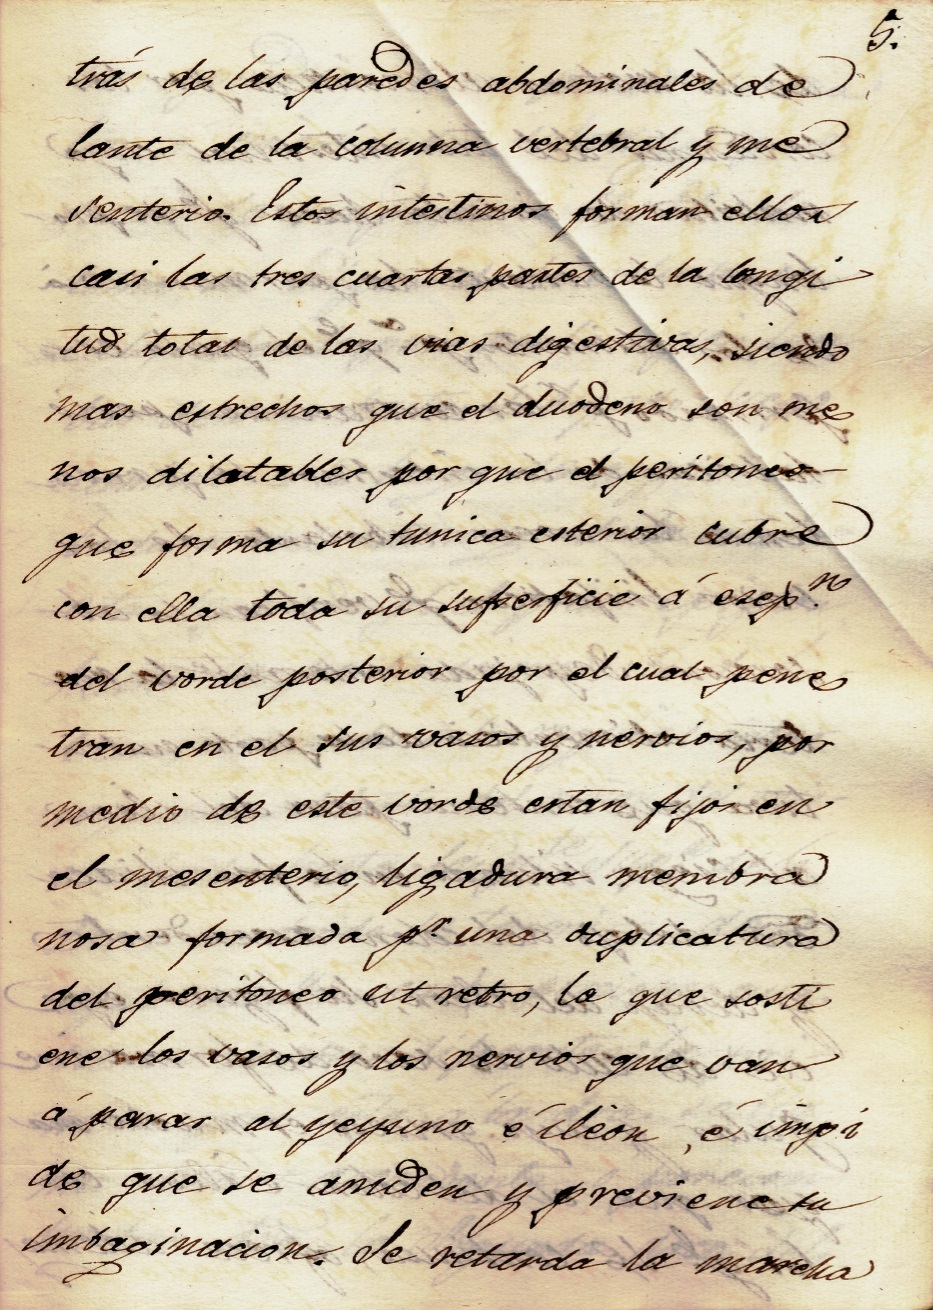 5.
trás de las paredes abdominales de
lante de la columna vertebral y me
senterio. Estos intestinos forman ellos
casi las tres cuartas partes de la longi
tud total de las vias digestivas, siendo
mas estrechos que el duodeno son me
nos dilatables por que el peritoneo
que forma su tunica esterior cubre
con ella toda su superficie á esepn.
del vorde posterior por el cual pene
tran en el sus vasos y nervios, por
medio de este vorde estan fijos en
el mesenterio, ligadura membra
nosa formada pr. una duplicatura
del peritoneo ut retro, la que sosti
ene los vasos y los nervios que van
á parar al yeyuno é ileon, é impi
de que se anuden y previene su
imbaginacion. Se retarda la marcha